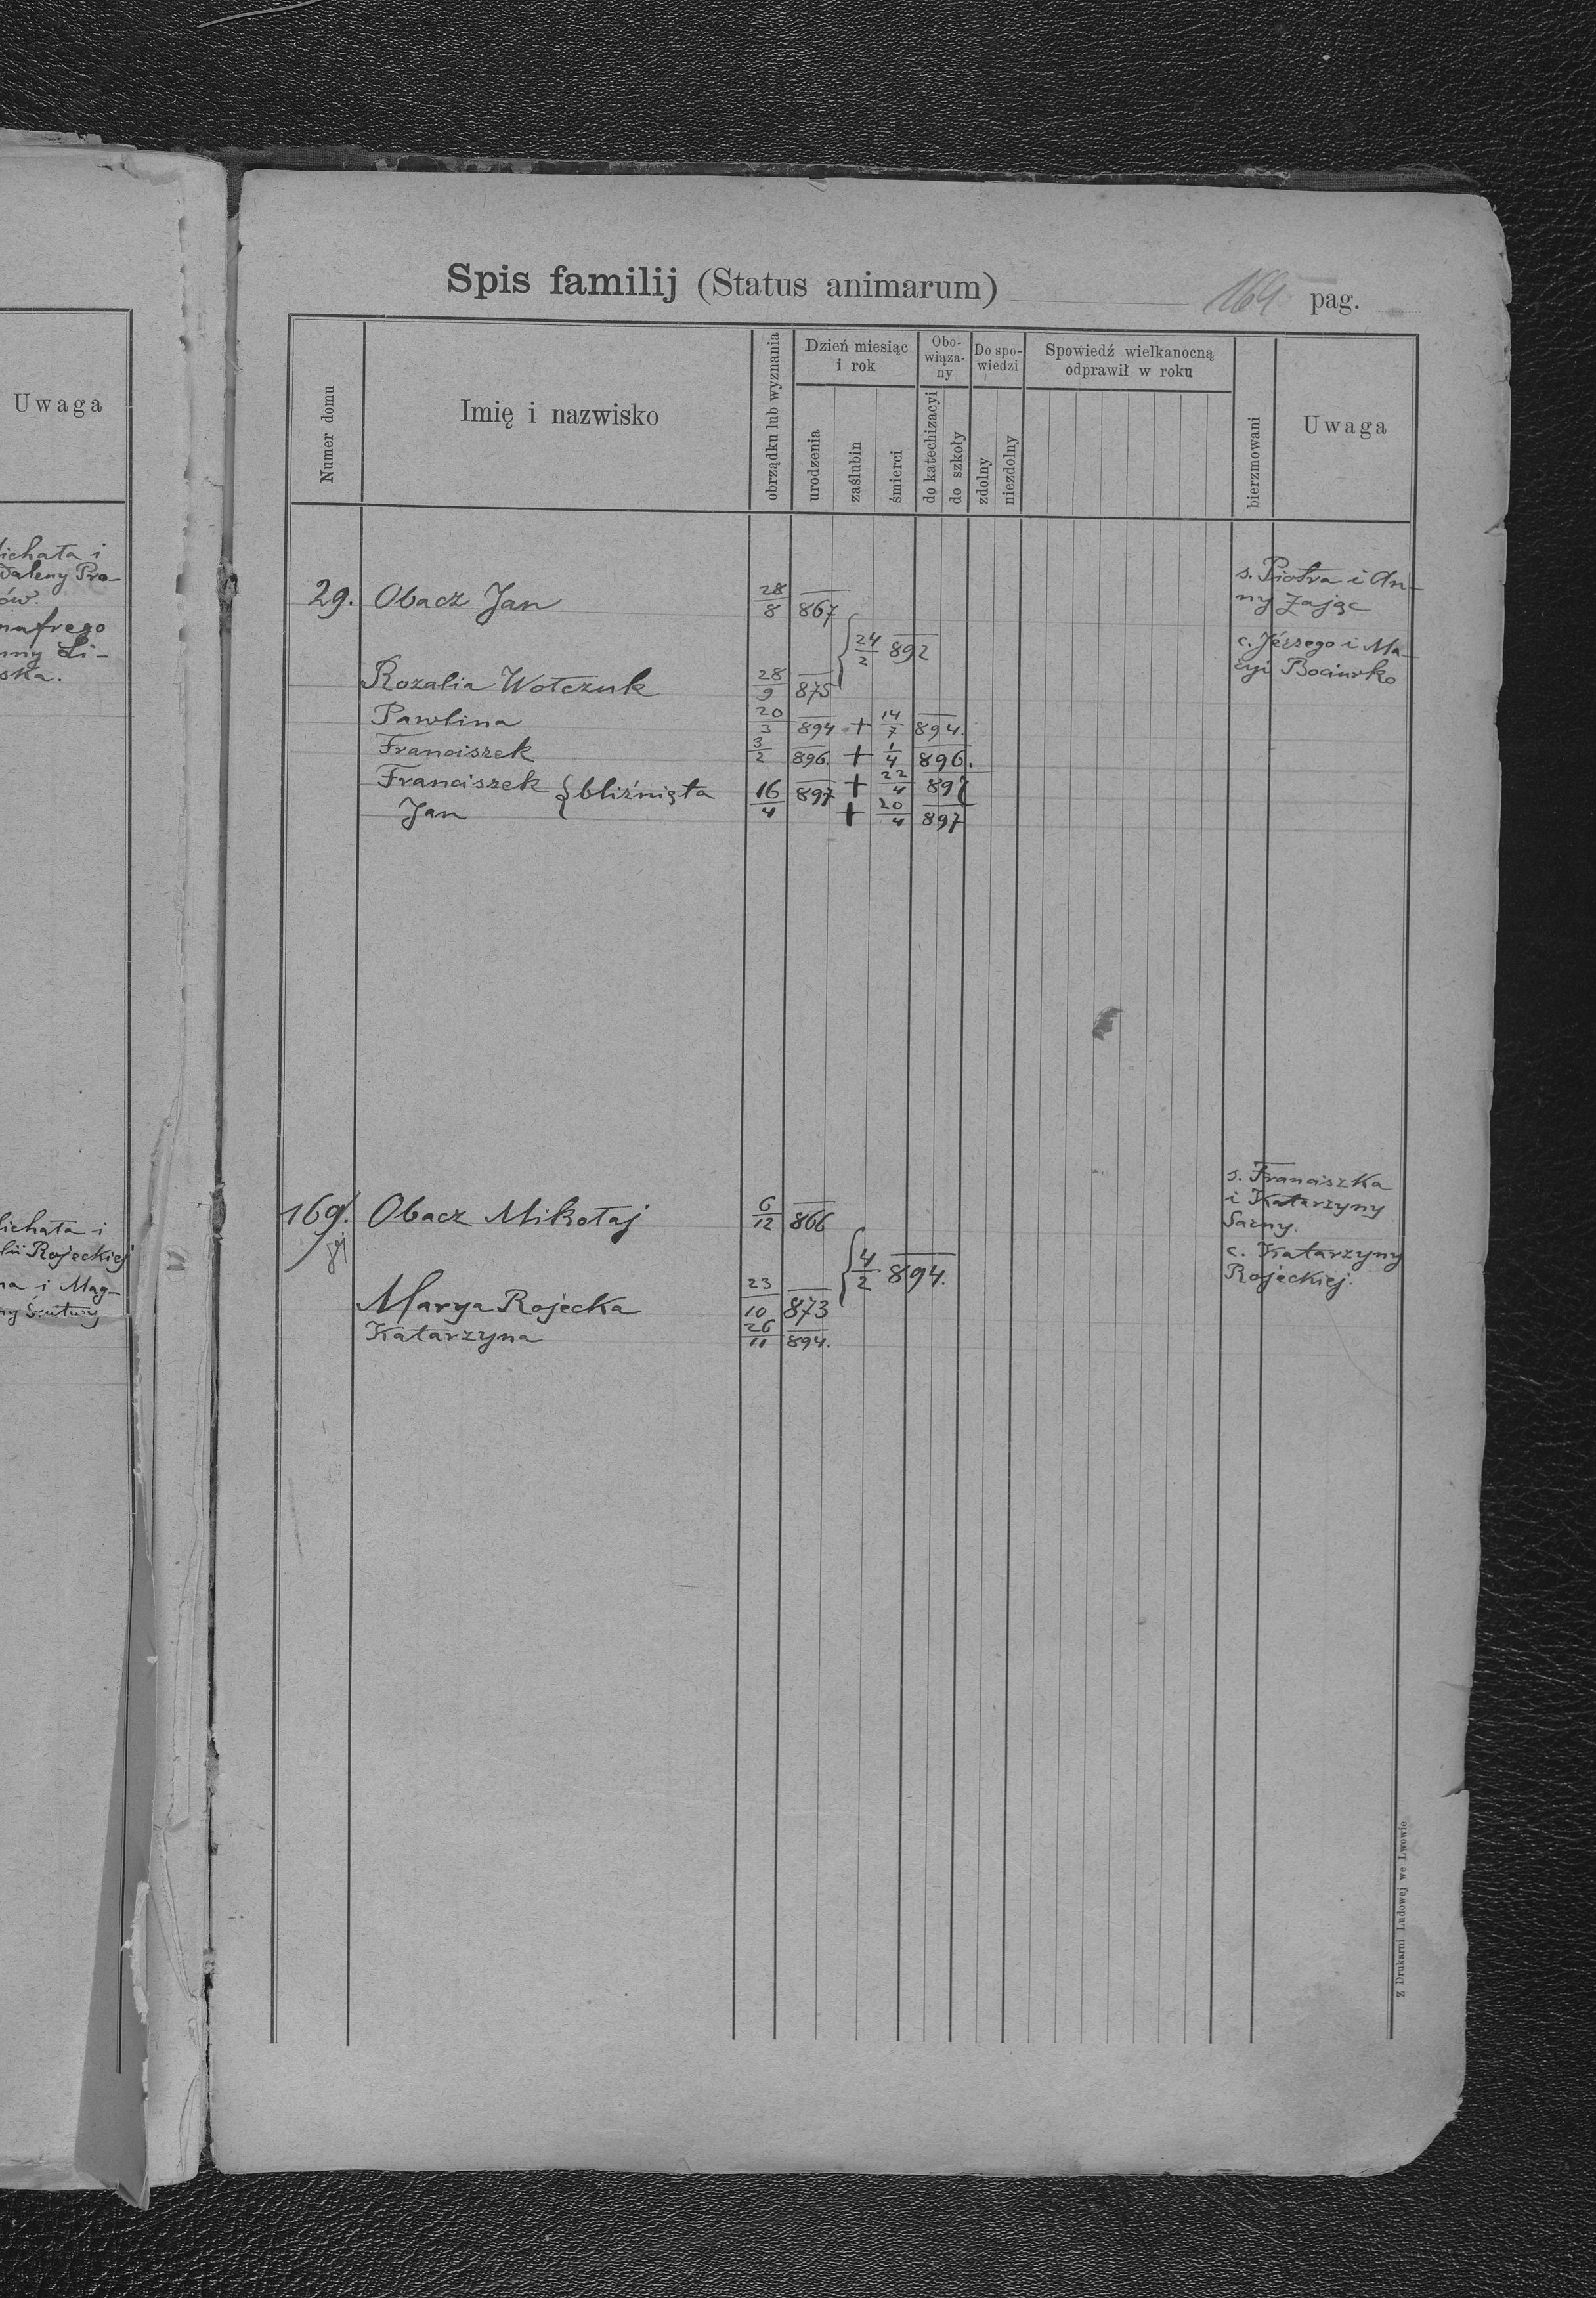 Uwaga
ichała i
daleny Pro-
ów.
nny Li-
ska.
ichała i
lii Rojeckiej
na i Mag-
Spis familij (Status animarum) 164 pag.
Numer domu
Imię i nazwisko
obrządku lub wyznania
Dzień miesiąc
i rok
urodzenia
zaślubin
śmierci
Obo-
wiąza-
ny
do katechizacyi
do szkoły
Do spo-
wiedzi
zdolny
niezdolny
Spowiedź wielkanocną
odprawił w roku
bierzmowani
Uwaga
29. Obacz Jan 28/8 867 s. Piotra i An-
ny Zając
{24/2 892
Rozalia Wołczuk 28/9 875 c. Jérzego i Ma-
ryi Bociurko
Pawlina 20/3 894 + 14/7 894.
Franciszek 3/2 896. + 1/4 896.
Franciszek {bliźnięta 16/4 897 + 22/4 897
Jan + 20/4 897
169. Obacz Mikołaj 6/12 866 s. Franciszka
i Katarzyny
Sarny.
{4/2 894.
Marya Rojecka 23/10 873 c. Katarzyny
Rojeckiej.
Katarzyna 26/11 894.
Z Drukarni Ludowej we Lwowie